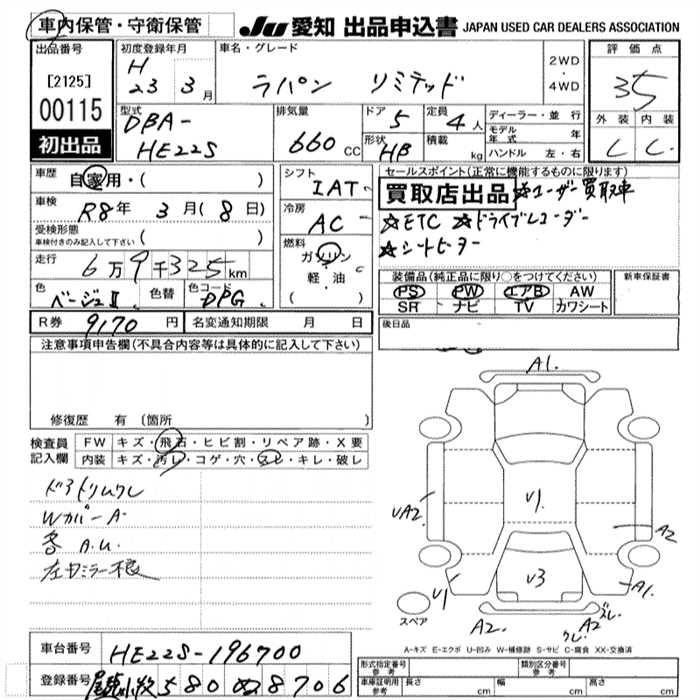 車内保管・守衛保管
JU 愛知 出品申込書 JAPAN USED CAR DEALERS ASSOCIATION
出品番号
[2125]
00115
初出品
初度登録年月
H
23 3月
車名・グレード
ラパン リミテッド
2WD
・
4WD
評価点
35
外装 内装
C C
型式
DBA-
HE22S
排気量
660 CC
ドア
5
定員
4人
形状
HB
積載
kg
ディーラー・並行
モデル年式 年
ハンドル 左・右
車歴
自家用・( )
車検
R8年 3月(8日)
受検形態
車検付きのみ記入して下さい ( )
走行
6万9千325km
色
ベージュⅡ
色替
色コード
DPG
シフト
IAT
冷房
AC
燃料
ガソリン
・
軽・油
( )
セールスポイント(正常に機能するものに限ります)
買取店出品 ☆ユーザー買取車
☆ETC ☆ドライブレコーダー
☆シートヒーター
装備品(純正品に限り○をつけてください)
PS PW エアB AW
SR ナビ TV カワシート
新車保証書
後日品
R券 9170円
名変通知期限 月 日
注意事項申告欄(不具合内容等は具体的に記入して下さい)
修復歴 有 (箇所
検査員
記入欄
FW キズ・飛石・ヒビ割・リペア跡・X要
内装 キズ・汚レ・コゲ・穴・スレ・キレ・破レ
ドアトリムクレ
Wカバー A
各 A.U.
左ドミラー根
A1.
V1.
VA2.
A2
V3
V1
A1.
A2.
A2スレ.
クレ.
スペア
A-キズ E-エクボ U-凹み W-補修跡 S-サビ C-腐食 XX-交換済
車台番号
HE22S-196700
登録番号
尾張小牧 580 ぬ 8706
形式指定番号
参考
類別区分番号
参考
車庫証明用
参考
長さ cm
幅 cm
高さ cm